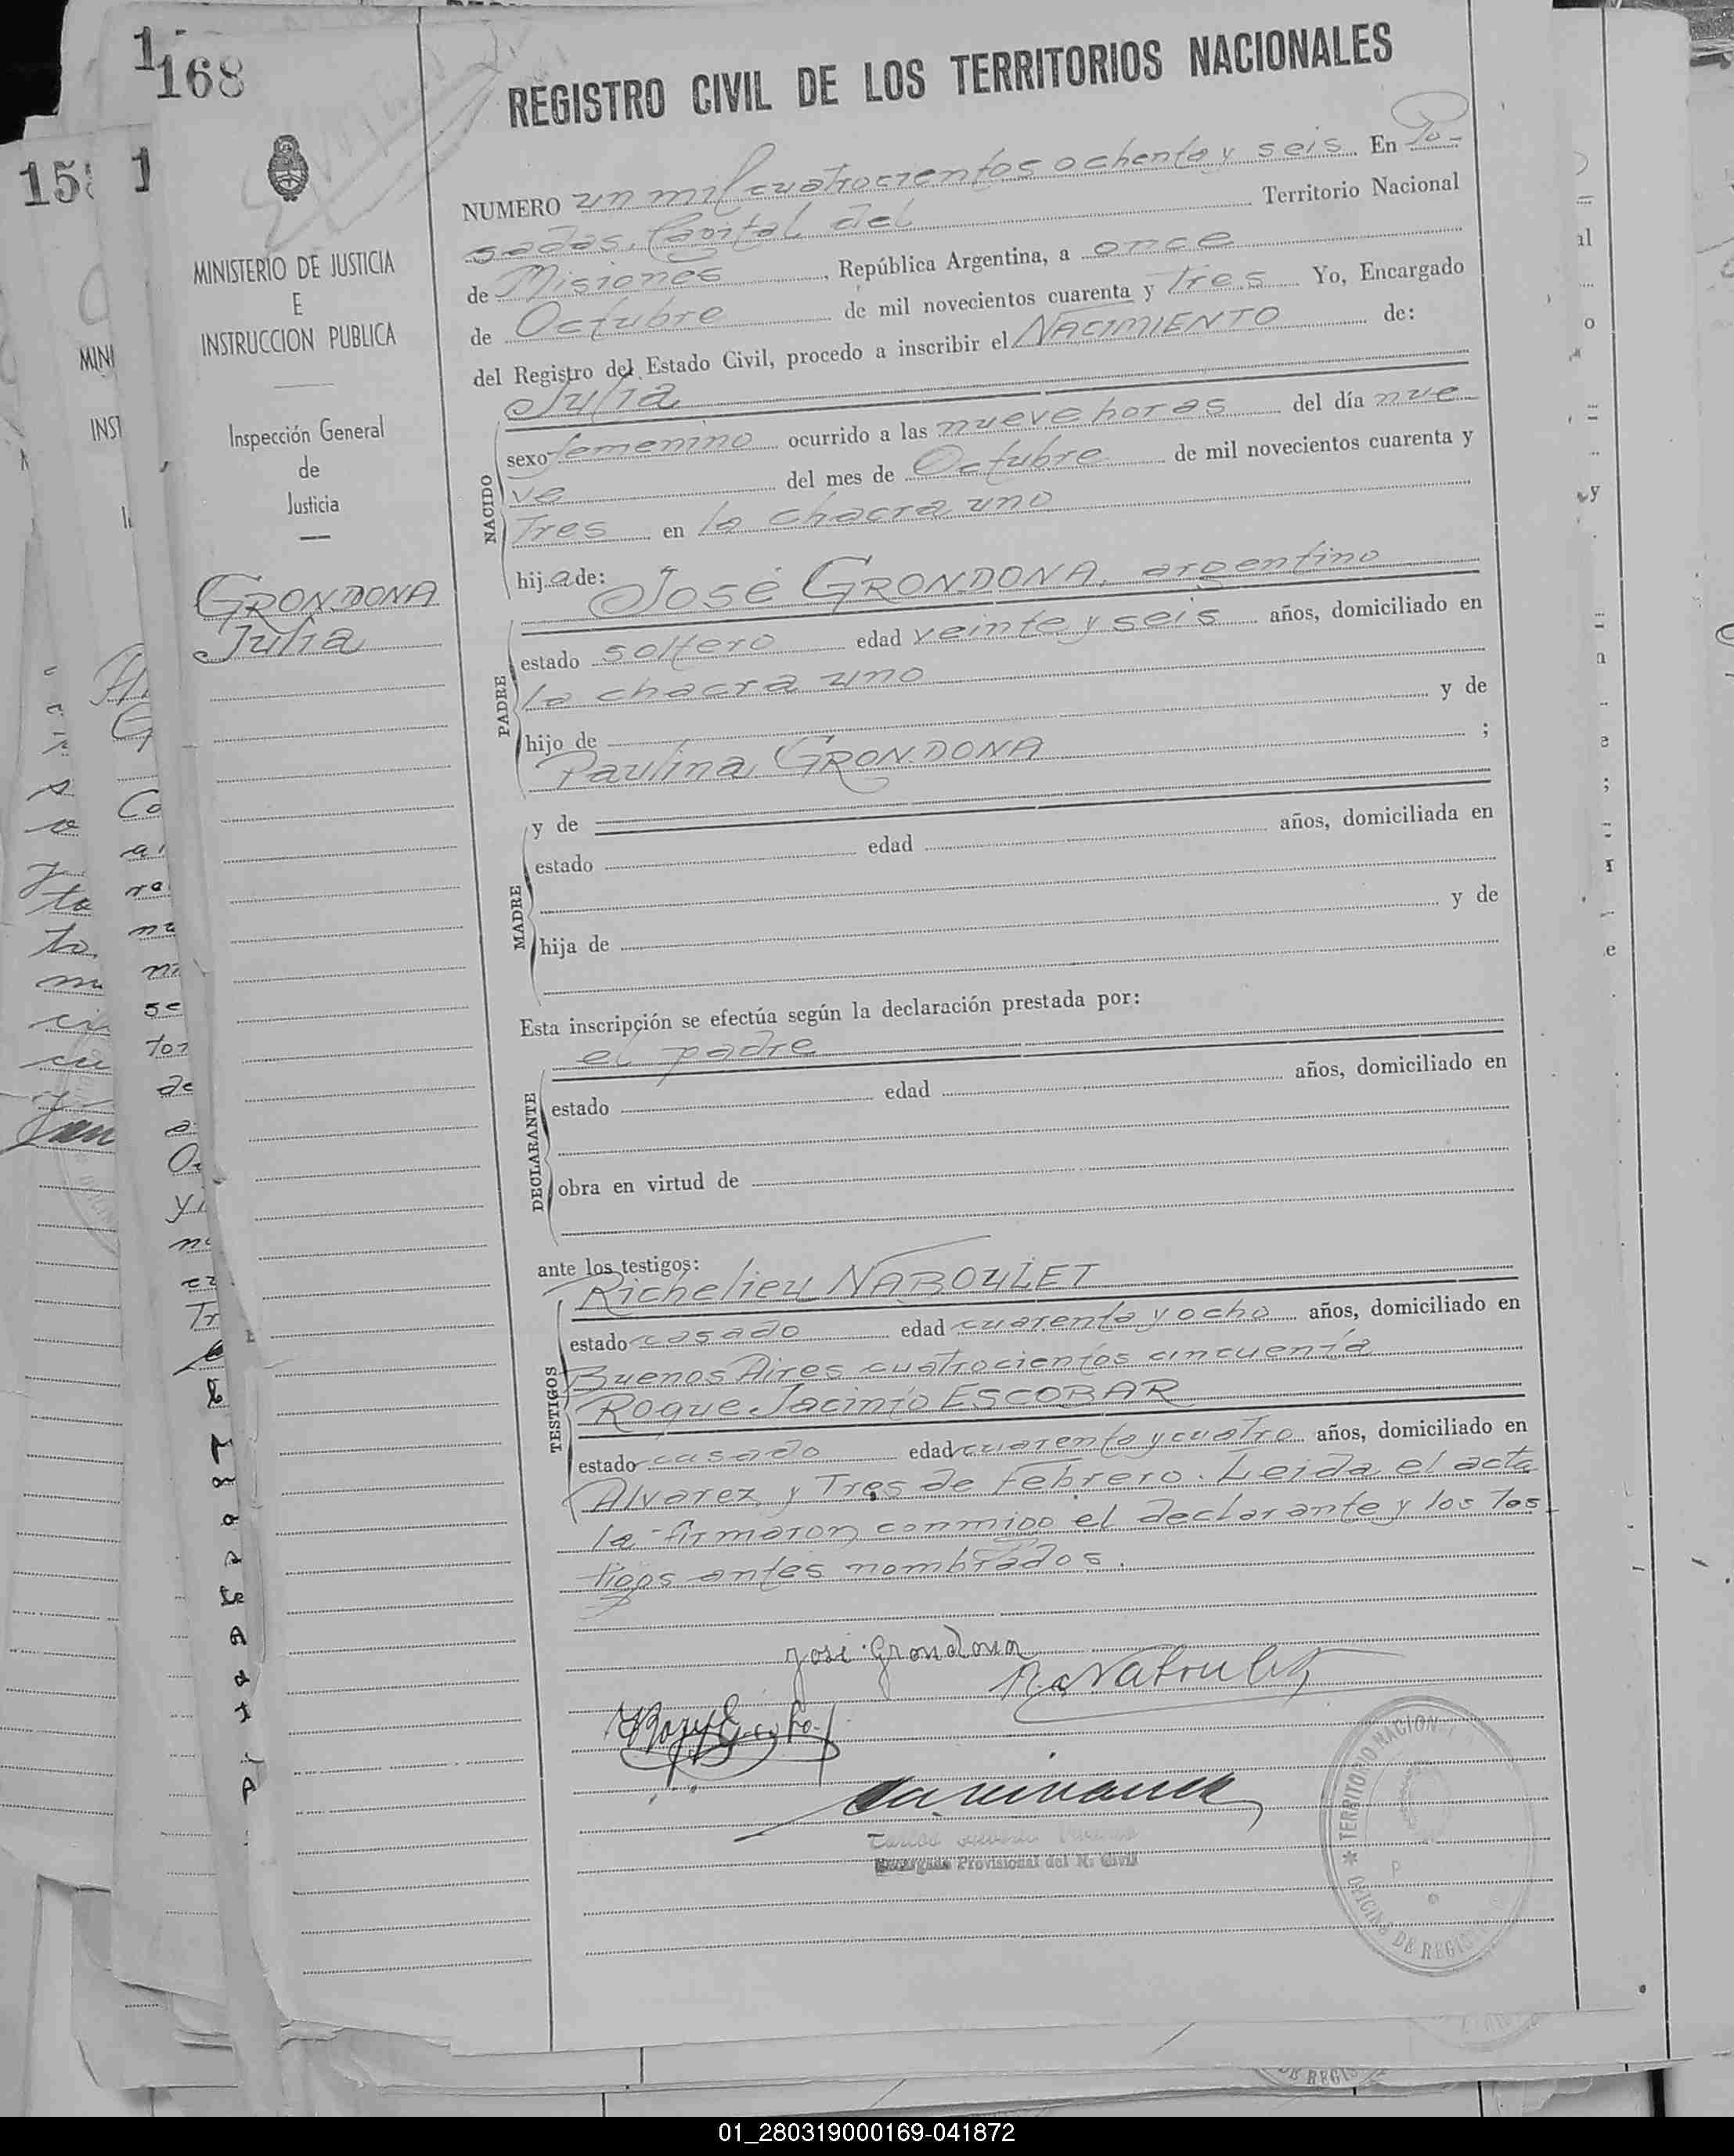 168
REGISTRO CIVIL DE LOS TERRITORIOS NACIONALES
MINISTERIO DE JUSTICIA
E
INSTRUCCION PUBLICA
Inspección General
de
Justicia
GRONDONA
Julia
NUMERO un mil cuatrocientos ochenta y seis En Po-
sadas, Capital del Territorio Nacional
de Misiones, República Argentina, a once
de Octubre de mil novecientos cuarenta y Tres Yo, Encargado
del Registro del Estado Civil, procedo a inscribir el NACIMIENTO de:
Julia
NACIDO
sexo femenino ocurrido a las nueve horas del día nue
ve del mes de Octubre de mil novecientos cuarenta y
Tres en la chacra uno
hija de: José GRONDONA, argentino
PADRE
estado soltero edad veinte y seis años, domiciliado en
la chacra uno
hijo de y de
Paulina GRONDONA ;
y de
MADRE
estado edad años, domiciliada en
hija de y de
Esta inscripción se efectúa según la declaración prestada por:
el padre
DECLARANTE
estado edad años, domiciliado en
obra en virtud de
ante los testigos:
Richelieu NABOULET
TESTIGOS
estado casado edad cuarenta y ocho años, domiciliado en
Buenos Aires cuatrocientos cincuenta
Roque Jacinto ESCOBAR
estado casado edad cuarenta y cuatro años, domiciliado en
Alvarez y Tres de Febrero. Leida el acta
la firmaron conmigo el declarante y los tes-
tigos antes nombrados.
José Grondona
R. Naboulet
Encargado Provisional del R. Civil
TERRITORIO NACION
OFICINA DE REGIS
01_280319000169-041872